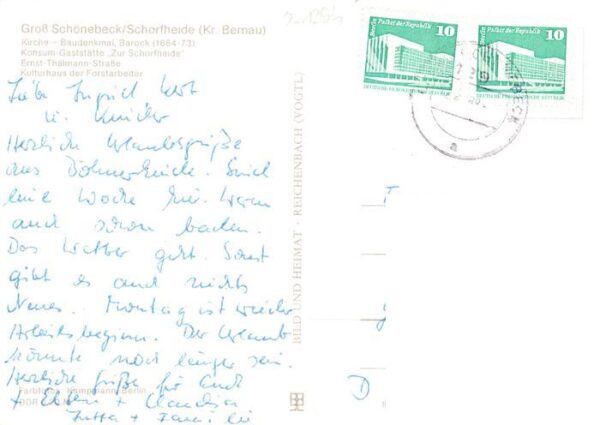 Groß Schönebeck/Schorfheide (Kr. Bernau)
Kirche – Baudenkmal, Barock (1664-73)
Konsum-Gaststätte „Zur Schorfheide"
Ernst-Thälmann-Straße
Kulturhaus der Forstarbeiter
Liebe Ingrid, Kurt
u. Kinder
Herzliche Urlaubsgrüße
aus. Sind
eine Woche hier. Waren
auch schon baden.
Das Wetter geht. Sonst
gibt es auch nichts
Neues. Montag ist wieder
Arbeitsbeginn. Der Urlaub
könnte noch länger sein.
Herzliche Grüße für Euch
+ Eltern + Claudia
Jutta +
Farbfoto: Kampmann, Berlin
DDR
BILD UND HEIMAT · REICHENBACH (VOGTL)
Berlin Palast der Republik
10
DEUTSCHE DEMOKRATISCHE REPUBLIK
Berlin Palast der Republik
10
DEUTSCHE DEMOKRATISCHE REPUBLIK
BECK
a
D